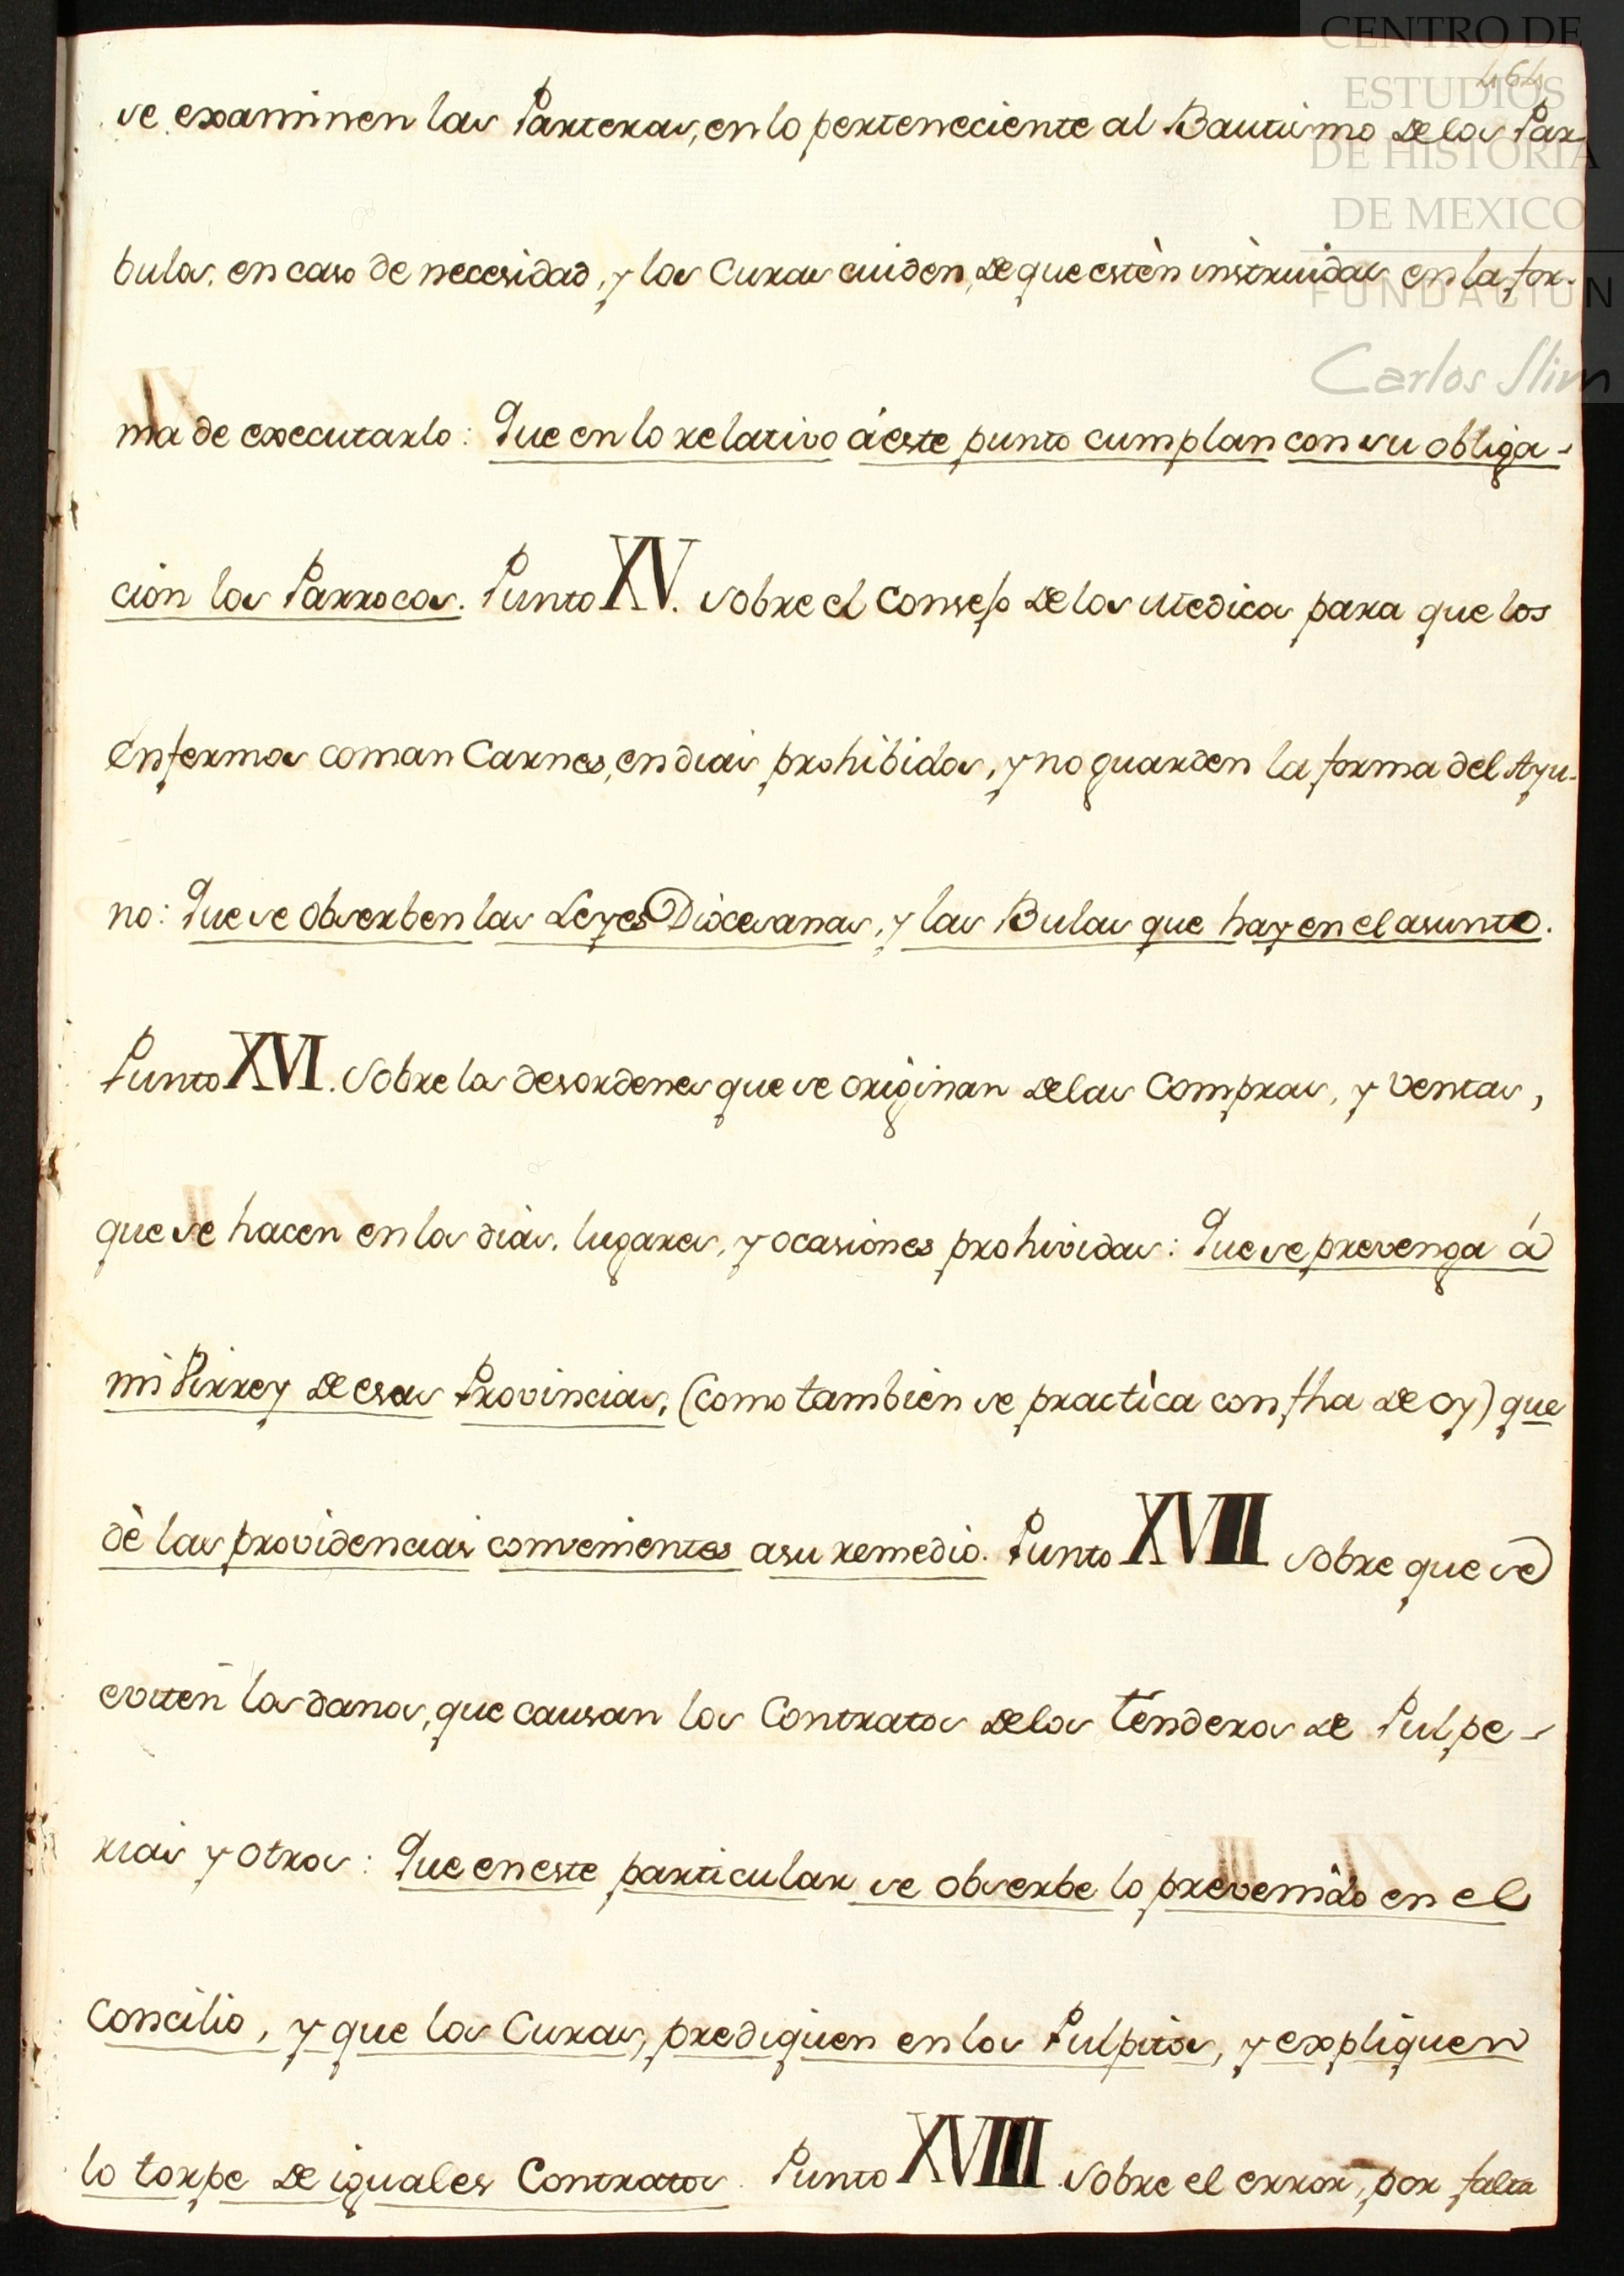 464
CENTRO DE
ESTUDIOS
DE HISTORIA
DE MEXICO
FUNDACION
Carlos Slim
se examinen las Parteras, en lo perteneciente al Bautismo de los Par
bulos, en caso de necesidad, y los Curas cuiden, de que estèn instruidas en la for-
ma de executarlo: Que en lo relativo á este punto cumplan con su obliga-
cion los Parrocos. Punto XV. sobre el Consejo de los Medicos para que los
enfermos coman Carnes, en dias prohibidos, y no guarden la forma del Ayu-
no: Que se obserben las Leyes Diocesanas, y las Bulas que hay en el asunto.
Punto XVI. Sobre los desordenes que se originan de las Compras, y ventas,
que se hacen en los dias, lugares, y ocasiones prohividas: Que se prevenga á
mi Virrey de esas Provincias, (como tambien se practìca con fha de oy) que
dè las providencias convenientes a su remedio. Punto XVII sobre que se
eviten los danos, que causan los Contratos de los tenderos de Pulpe-
rias y otros: Que en este particular se obserbe lo prevenido en el
Concilio, y que los Curas, prediquen en los Pulpitos, y expliquen
lo torpe de iguales Contratos. Punto XVIII. Sobre el error, por falta